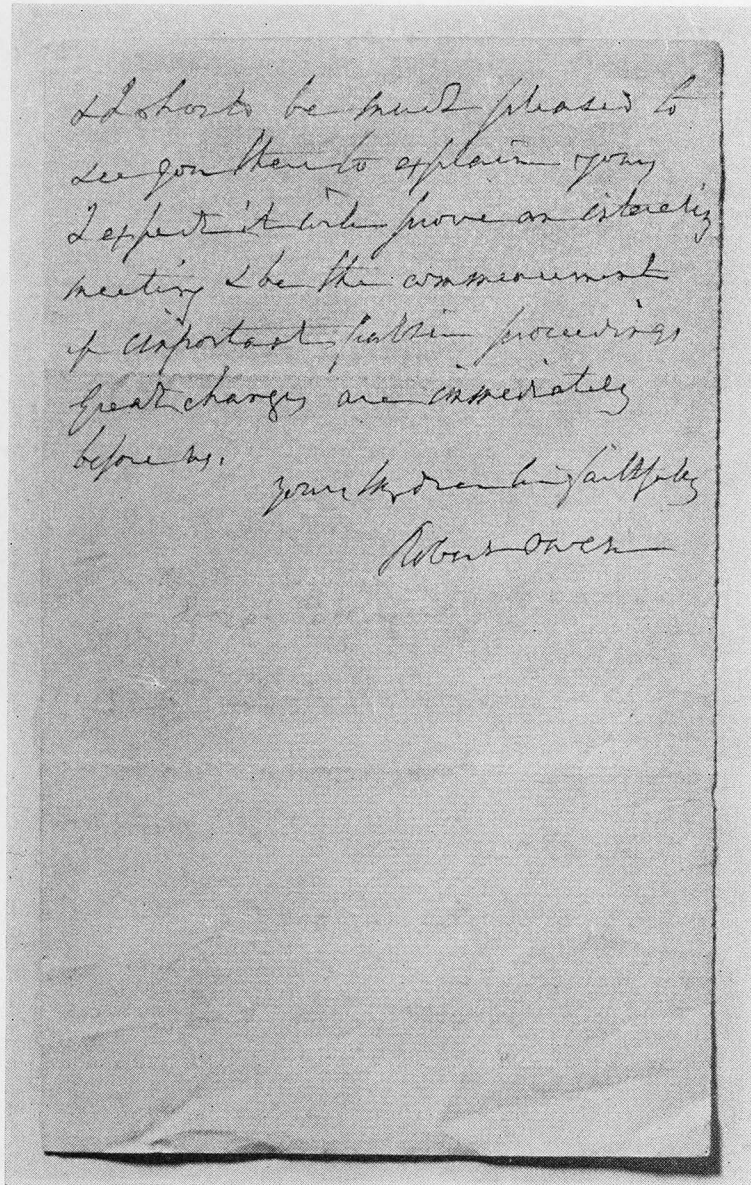 & I shall be much pleased to
see you there to explain yours
I expect it will prove an interesting
meeting & be the commencement
of important public proceedings
Great changes are immediately
before us.
Yours my dear Sir faithfully
Robert Owen